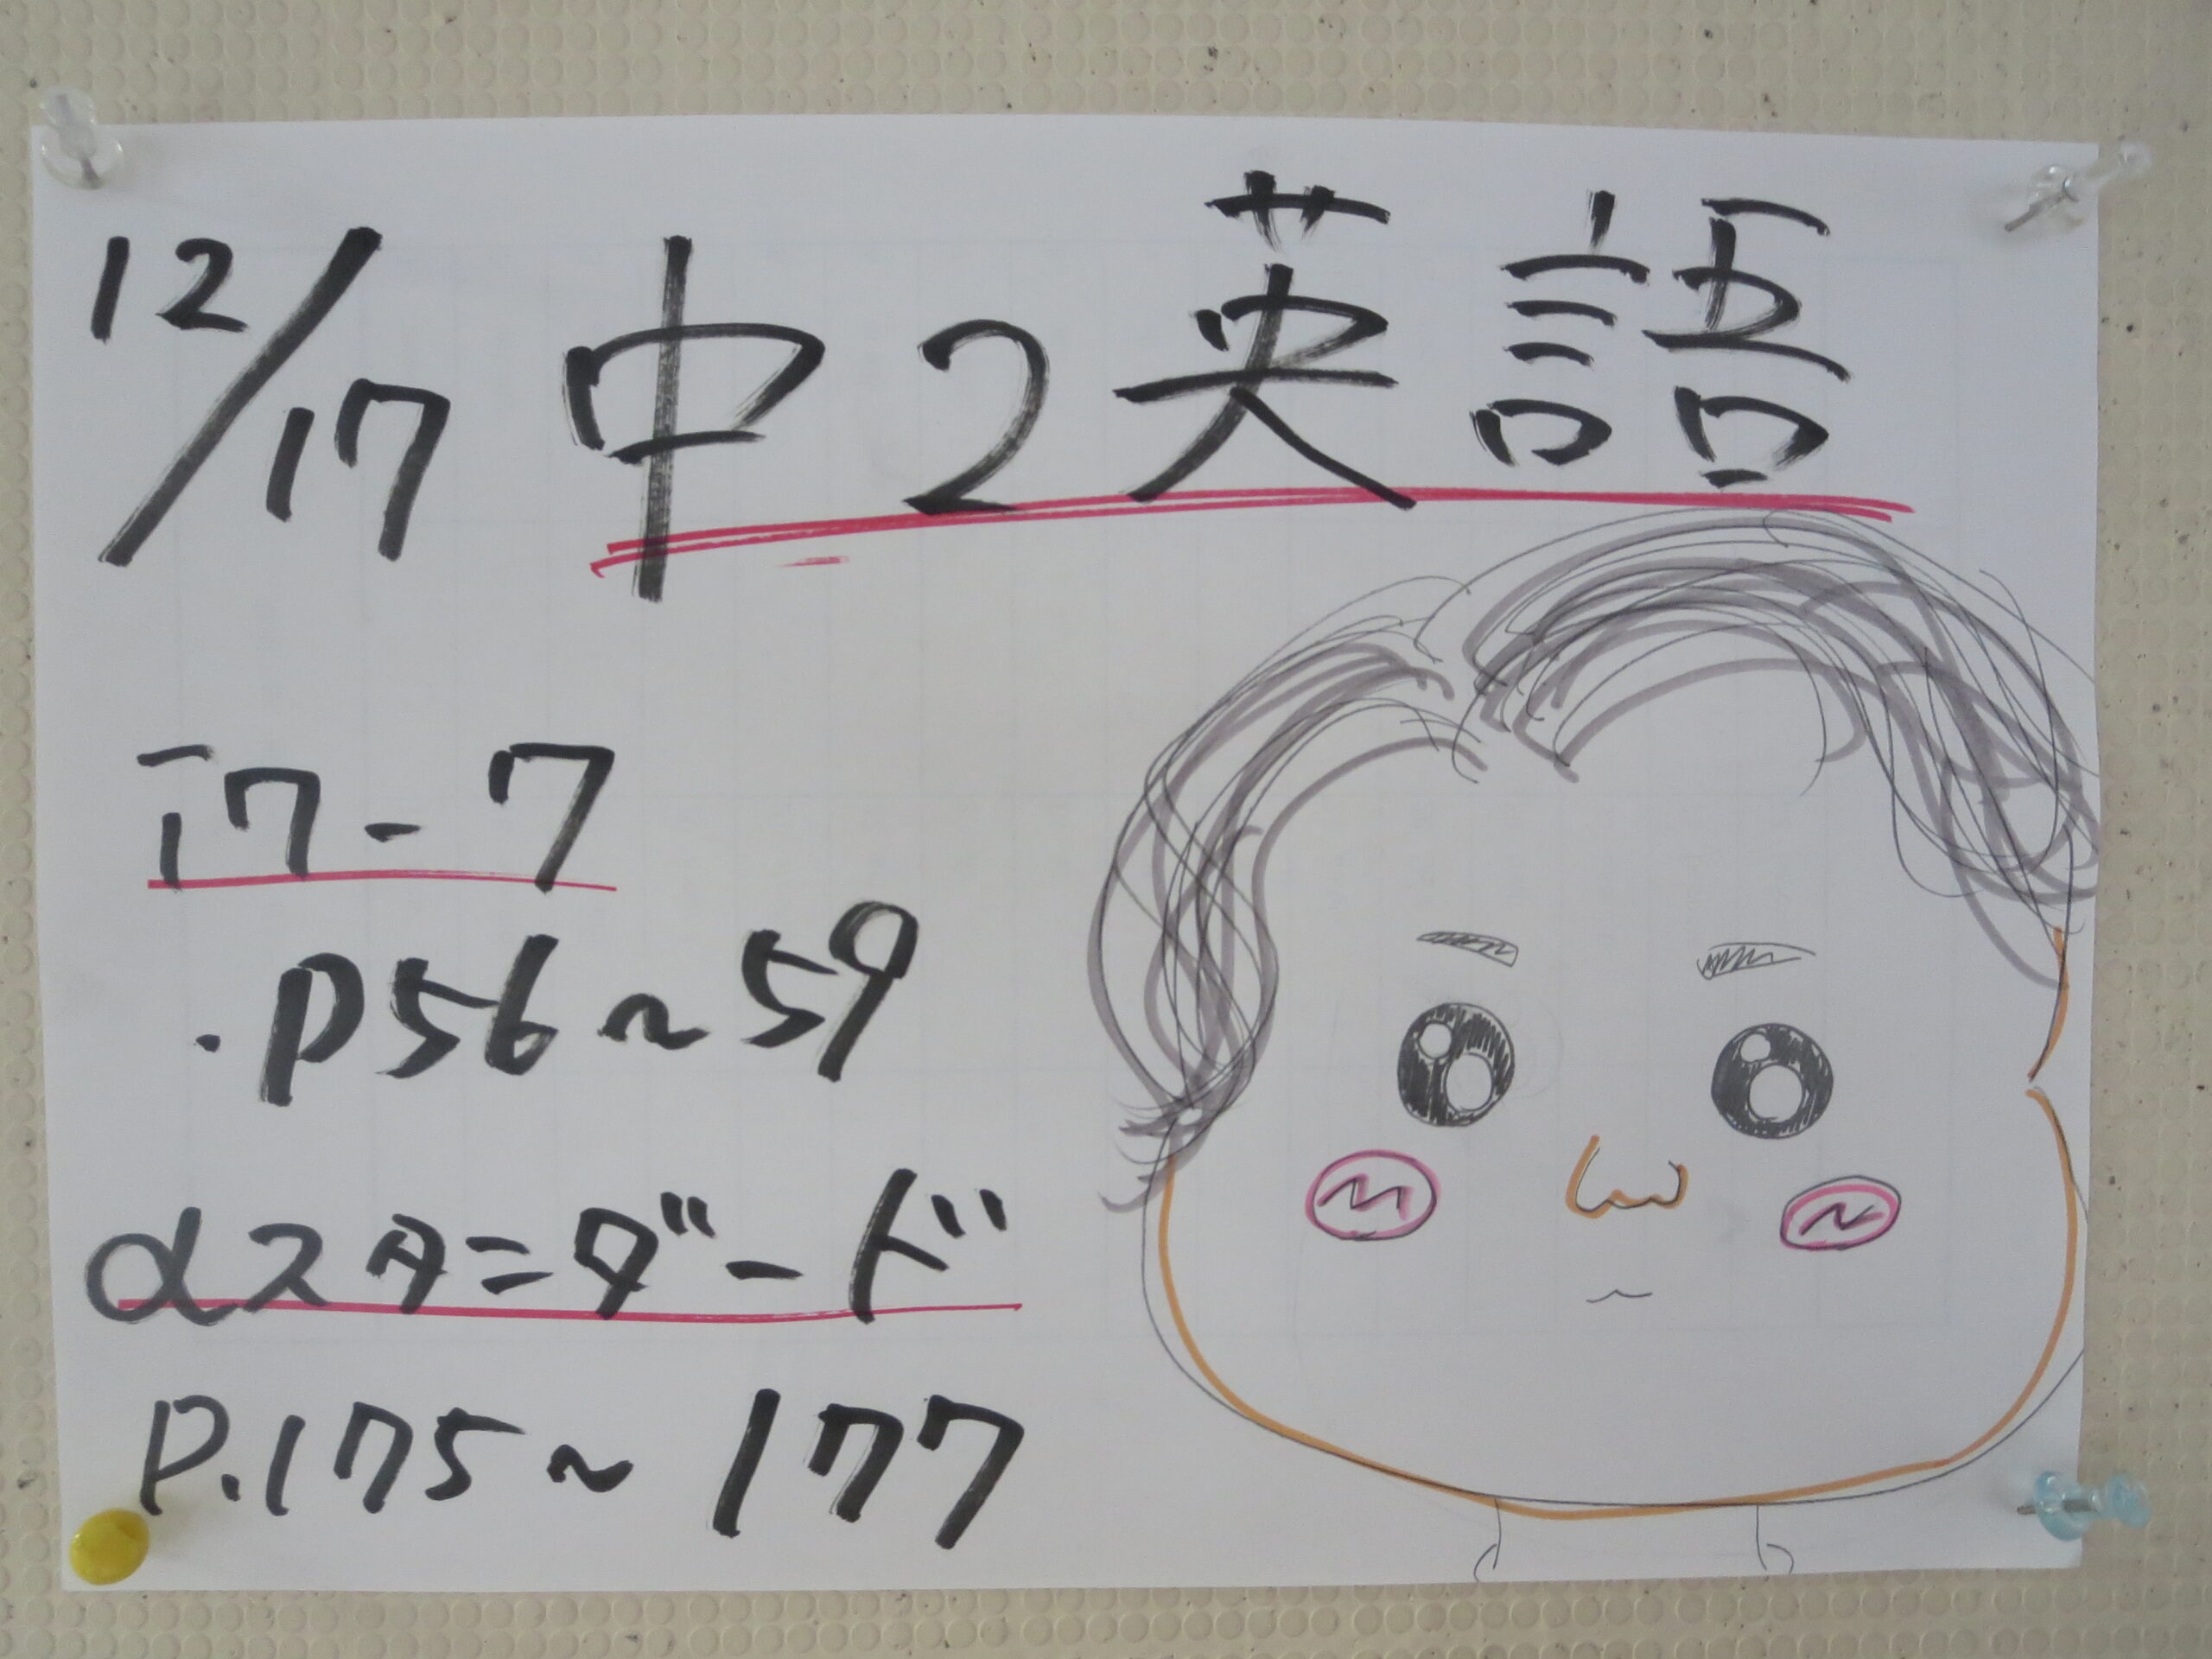 12/17 中2英語
ワーク
・P56~59
αスタンダード
P.175~177